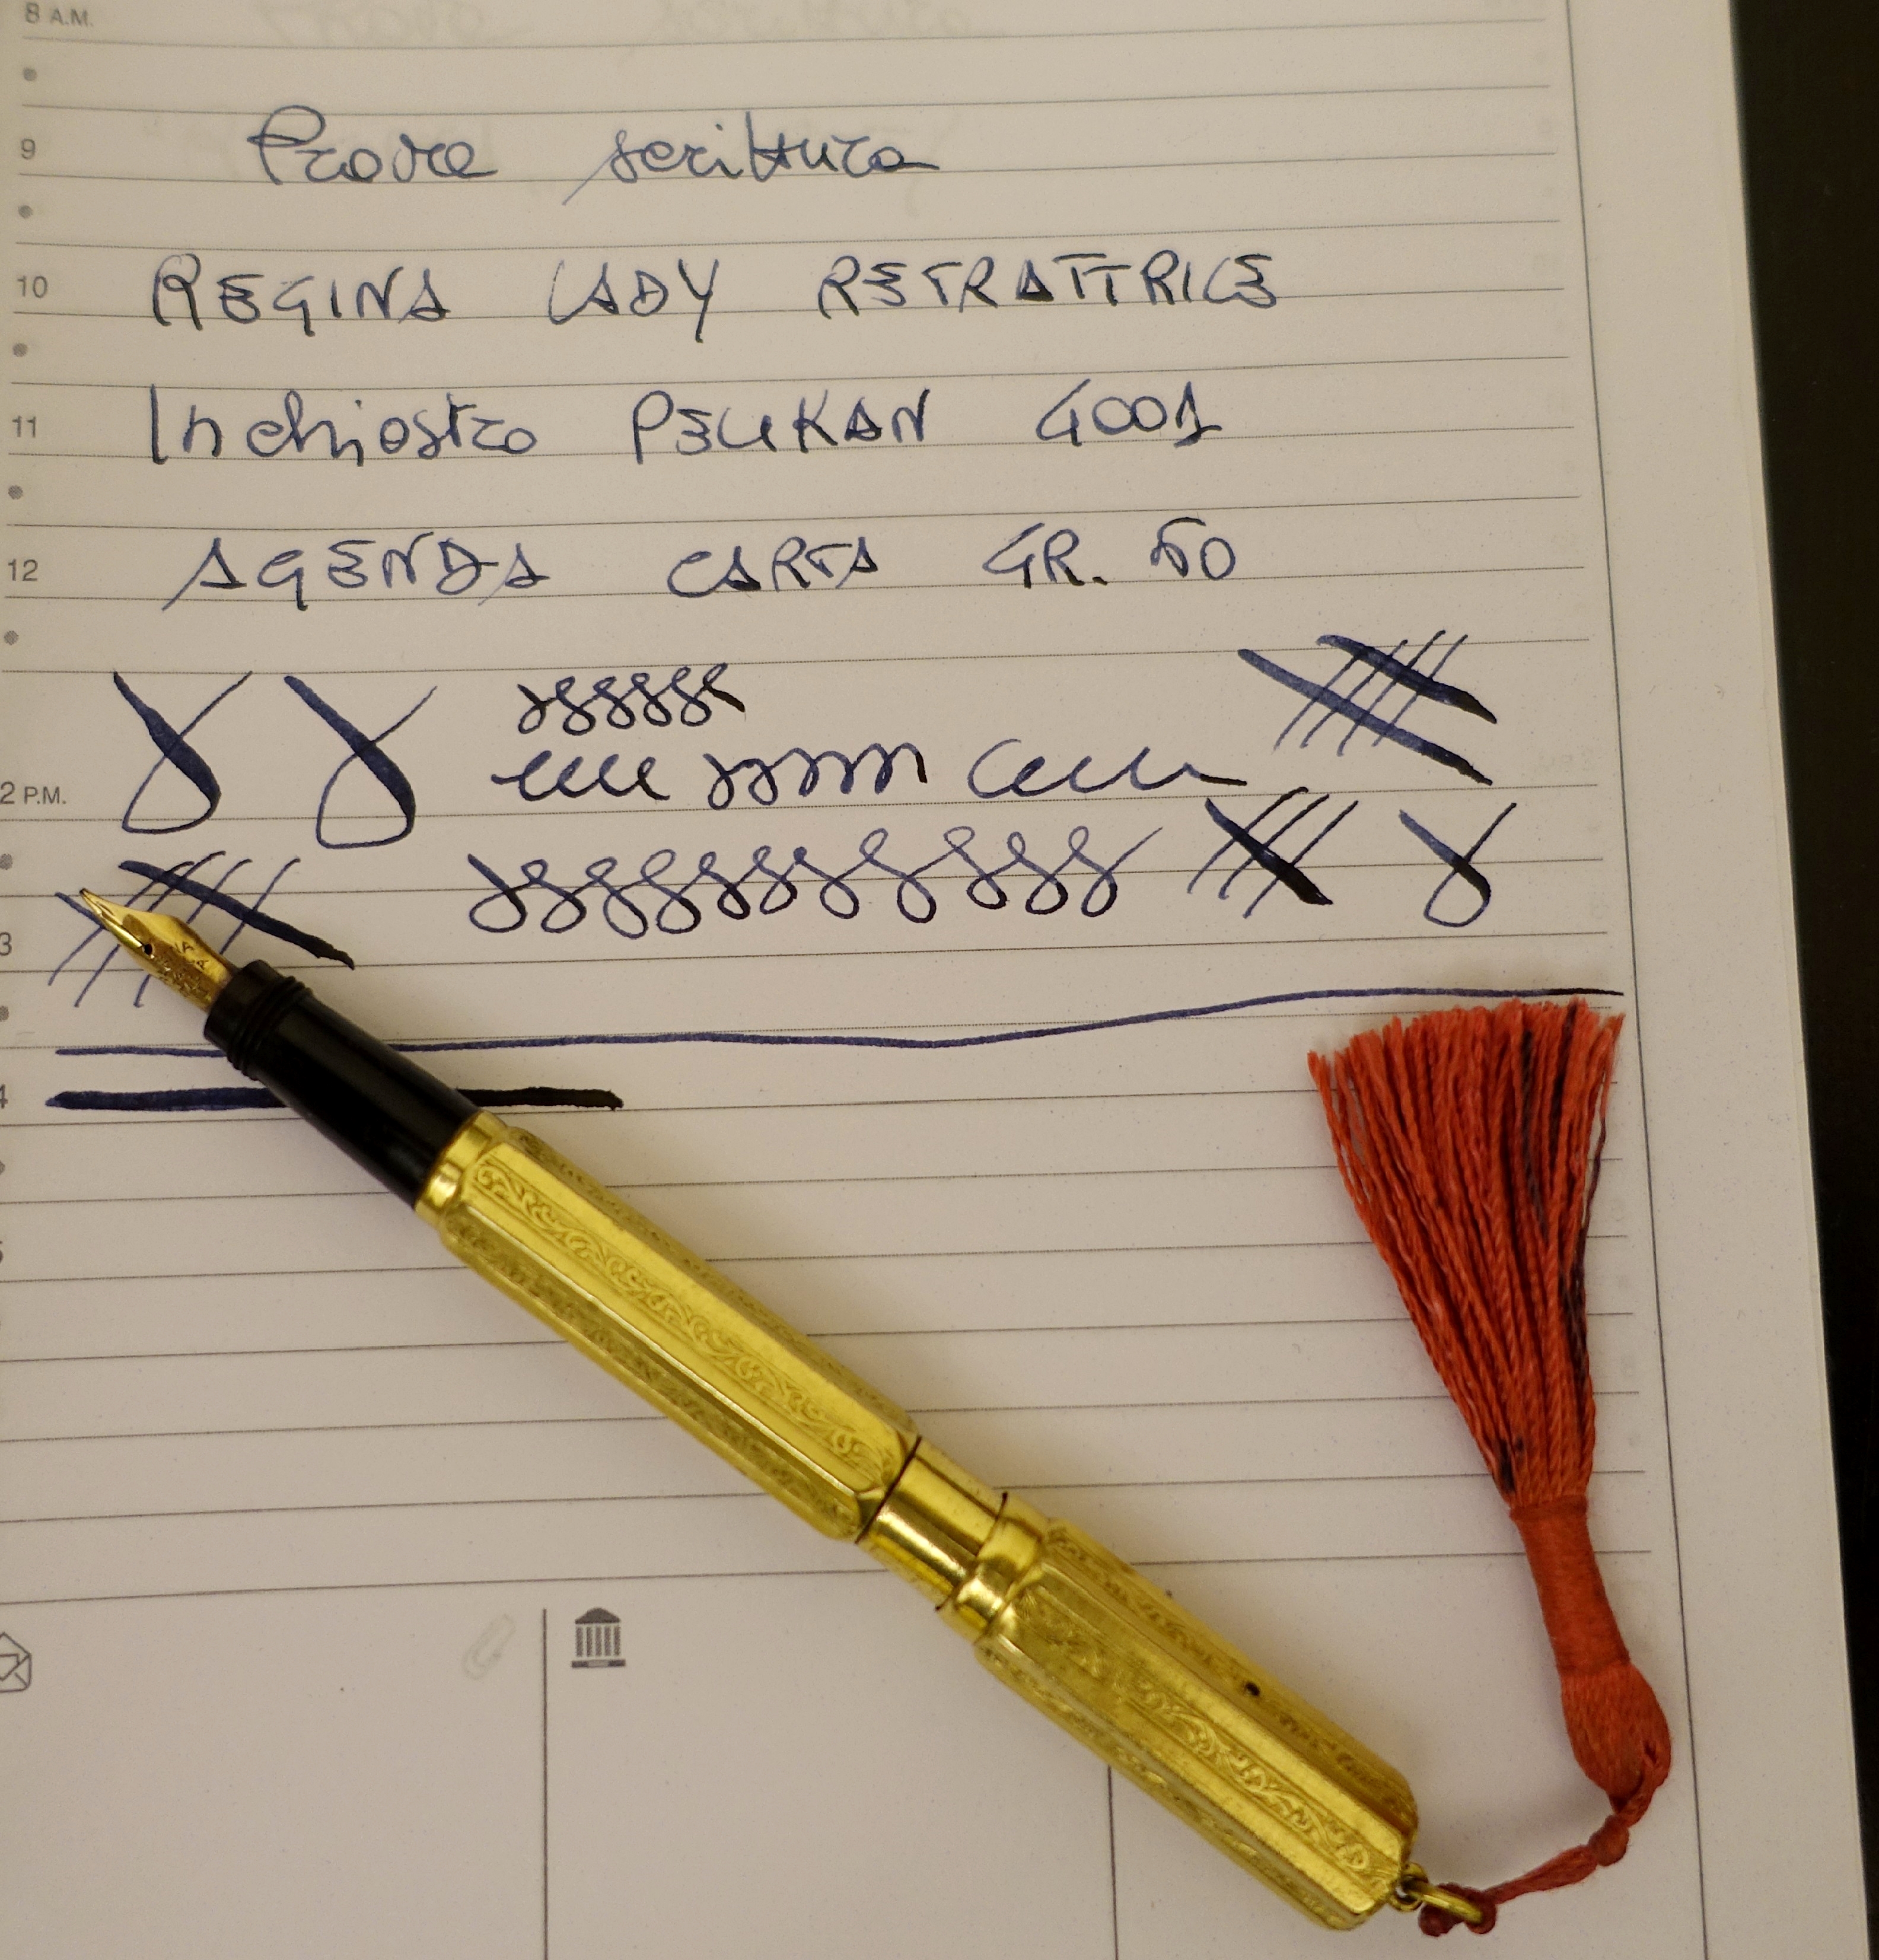 8 A.M.
9 Prove scrittura
10 REGINA LADY RETRATTRICE
11 Inchiostro PELIKAN 4001
12 AGENDA CARTA GR.
2 P.M.
3
4